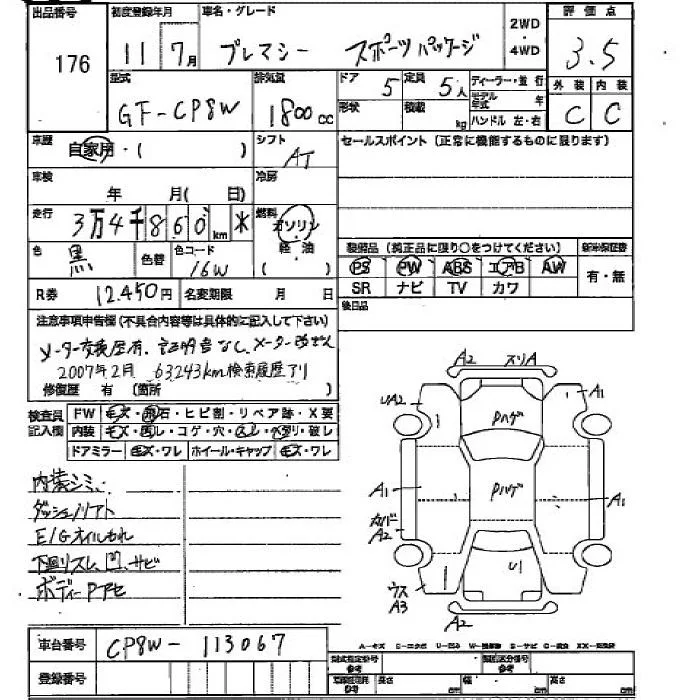 出品番号 初度登録年月 車名・グレード 2WD・4WD 評価点
176 11年 7月 プレマシー スポーツパッケージ 3.5
型式 排気量 ドア 定員 ディーラー・並行 外装 内装
GF-CP8W 1800cc 5 5人 モデル年式 年 C C
形状 積載 kg ハンドル 左・右
車歴 自家用・( ) シフト AT セールスポイント(正常に機能するものに限ります)
車検 年 月( 日) 冷房
走行 3万4千860km * 燃料 ガソリン
軽・油
( )
色 黒 色替 色コード 16W
装備品(純正品に限り○をつけてください) 新車保証書
PS PW ABS エアB AW 有・無
SR ナビ TV カワ
R券 12,450円 名変期限 月 日 後日品
注意事項申告欄(不具合内容等は具体的に記入して下さい)
メーター交換歴有、証明書なし、メーター改ざん
2007年2月 63243km検索履歴アリ
修復歴 有 (箇所 )
検査員記入欄 FW キズ・飛石・ヒビ割・リペア跡・X要
内装 キズ・凹レ・コゲ・穴・スレ・ヘタリ・破レ
ドアミラー キズ・ワレ ホイール・キャップ キズ・ワレ
内装シミ
ダッシュリフト
E/Gオイルもれ
下回リスレ、凹、サビ
ボディーPアセ
A2 スリA
UA2 A1
Pハゲ
A1 Pハゲ A1
カバーA2
U1
ウスA3
A2
車台番号 CP8W-113067
登録番号
A-キズ
型式指定番号 参考 類別区分番号 参考
参考 長さ cm 幅 cm 高さ cm